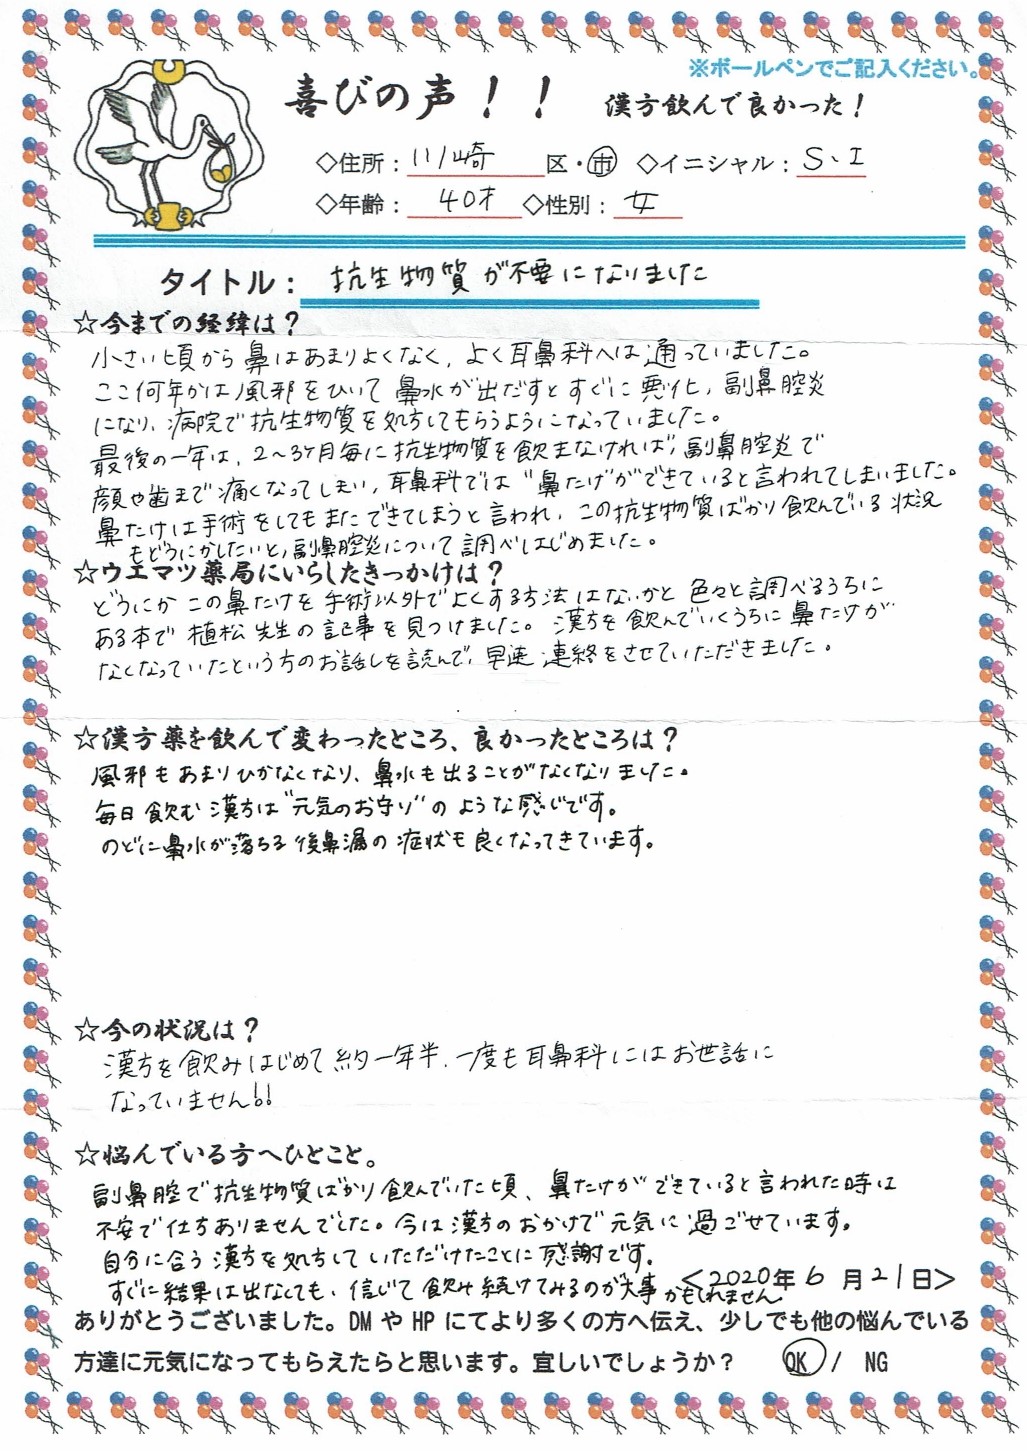 ※ボールペンでご記入ください。
喜びの声！！ 漢方飲んで良かった！
◇住所：川崎 区・市 ◇イニシャル：S、I
◇年齢：40才 ◇性別：女
タイトル：抗生物質が不要になりました
☆今までの経緯は？
小さい頃から鼻はあまりよくなく、よく耳鼻科へは通っていました。
ここ何年かは風邪をひいて鼻水が出だすとすぐに悪化、副鼻腔炎
になり、病院で抗生物質を処方してもらうようになっていました。
最後の一年は、2～3ヶ月毎に抗生物質を飲まなければ、副鼻腔炎で
顔や歯まで痛くなってしまい、耳鼻科では"鼻たけ"ができていると言われてしまいました。
鼻たけは手術をしてもまたできてしまうと言われ、この抗生物質ばかり飲んでいる状況
もどうにかしたいと、副鼻腔炎について調べはじめました。
☆ウエマツ薬局にいらしたきっかけは？
どうにかこの鼻たけを手術以外でよくする方法はないかと色々と調べるうちに
ある本で植松先生の記事を見つけました。漢方を飲んでいくうちに鼻たけが
なくなっていたという方のお話しを読んで、早速連絡をさせていただきました。
☆漢方薬を飲んで変わったところ、良かったところは？
風邪もあまりひかなくなり、鼻水も出ることがなくなりました。
毎日飲む漢方は"元気のお守り"のような感じです。
のどに鼻水が落ちる後鼻漏の症状も良くなってきています。
☆今の状況は？
漢方を飲みはじめて約一年半、一度も耳鼻科にはお世話に
なっていません!!
☆悩んでいる方へひとこと。
副鼻腔で抗生物質ばかり飲んでいた頃、鼻たけができていると言われた時は
不安で仕方ありませんでした。今は漢方のおかげで元気に過ごせています。
自分に合う漢方を処方していただけたことに感謝です。
すぐに結果は出なくても、信じて飲み続けてみるのが大事かもしれません。
＜2020年6月21日＞
ありがとうございました。DM や HP にてより多くの方へ伝え、少しでも他の悩んでいる
方達に元気になってもらえたらと思います。宜しいでしょうか？ OK / NG